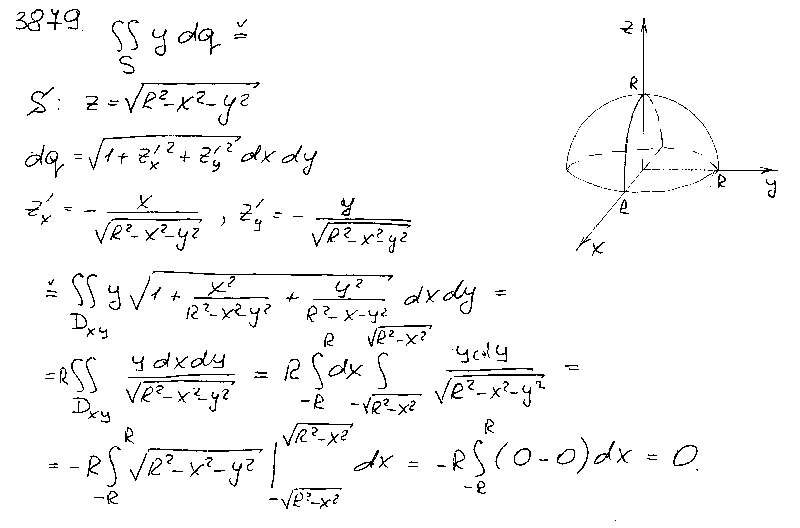 3879. ∬_S y dq ≚
S: z = √(R²-x²-y²)
dq = √(1 + z'ₓ² + z'ᵧ²) dx dy
z'ₓ = - x/√(R²-x²-y²) , z'ᵧ = - y/√(R²-x²y²)
≚ ∬_Dxy y √(1 + x²/(R²-x²y²) + y²/(R²-x-y²)) dx dy =
= R ∬_Dxy y dx dy/√(R²-x²-y²) = R ∫_{-R}^{R} dx ∫_{-√(R²-x²)}^{√(R²-x²)} y dy/√(R²-x²-y²) =
= -R ∫_{-R}^{R} √(R²-x²-y²) |_{-√(R²-x²)}^{√(R²-x²)} dx = -R ∫_{-R}^{R} (0-0) dx = 0.
z
R
R
R
y
x